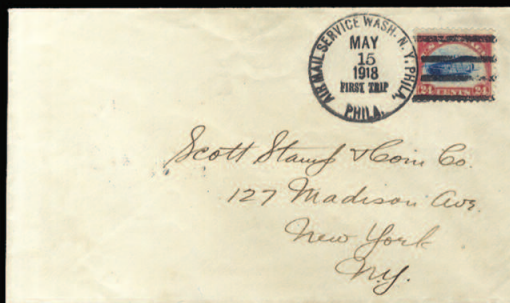 AIR MAIL SERVICE WASH. N.Y. PHILA.
MAY
15
1918
FIRST TRIP
PHILA.
24 CENTS 24
Scott Stamp & Coin Co.
127 Madison Ave.
New York
N.Y.